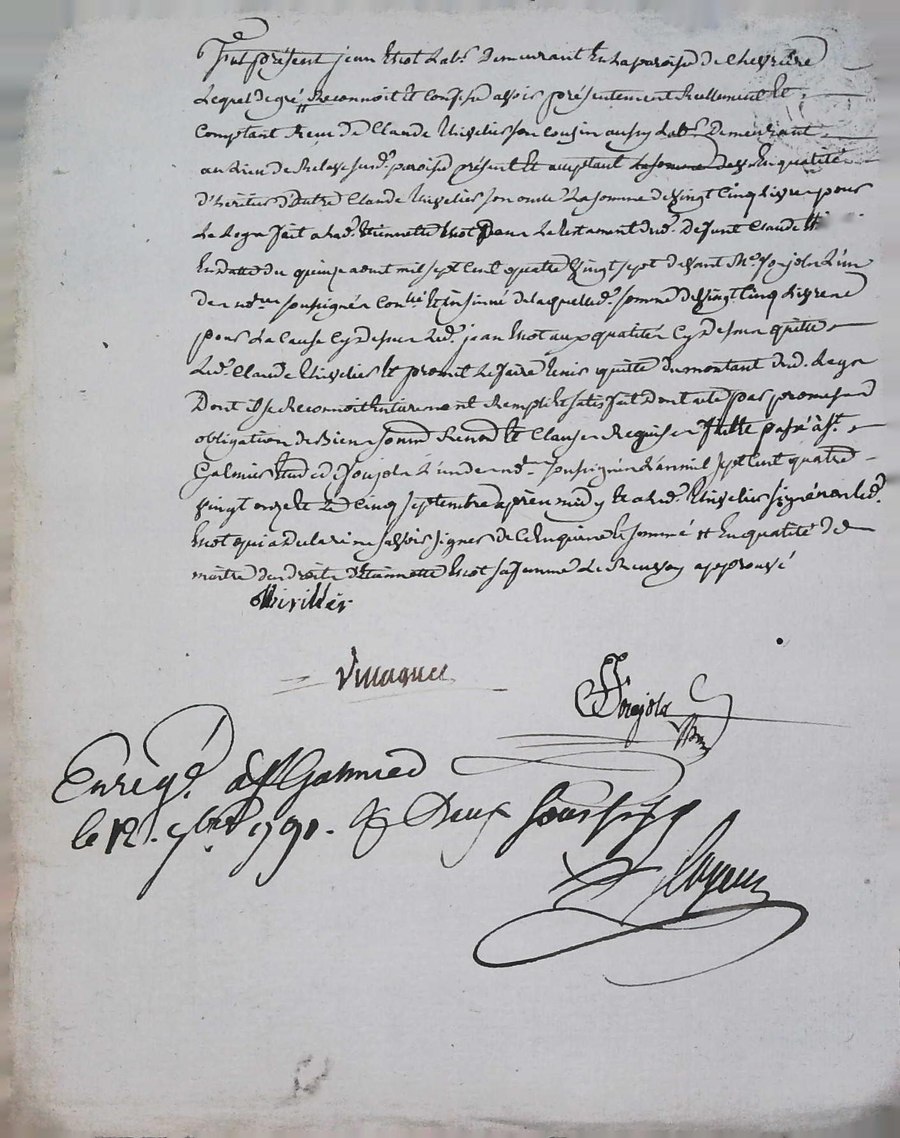 Fut présent jean Viol Lab.r Demeurant En La paroisse de Chevriere
Lequel de gré Reconnoit Et Confesse avoir présentement Reellement Et
Comptant Reçu De Claude son Cousin aussy Lab.r Demeurant
au Lieu de susd.e paroisse présent Et acceptant la somme de En qualité
d'héritier D'autre Claude son oncle La somme de vingt Cinq Livres pour
Le Legs fait a Lad.e Etiennette Viol par Le testament dud.t Defunt Claude
En datte du quinze aout mil sept Cent quatre vingt sept devant Me Jourjola L'un
des no.res soussignés Con.lé Et insinué de laquelle d.e somme de vingt Cinq Livres
pour La Cause Cy dessus Led.t jean Viol aux qualités Cy dessus quitte
Led.t Claude Et promet Le faire tenir quitte du montant dud.t Legs
Dont il se Reconnoit Entierement Remply Et satisfait Dont acte par promesses
obligation de Biens soumis Renon.d Et Clauses Requises fait Et passé à St
Galmier Etude de Jourjola L'un des no.res soussignés L'an mil sept Cent quatre
vingt onze Et Le Cinq septembre après midy Et a Led.t signé non Led.t
Viol qui a declaré ne savoir signer de Ce Enquis Et sommé Et En qualité de
maitre des droits D'Etiennette Viol sa femme Le Renvoy approuvé
Villaguet
Jourjola
Enreg.é à St Galmier
le 12. 7bre 1791. Deux sous six